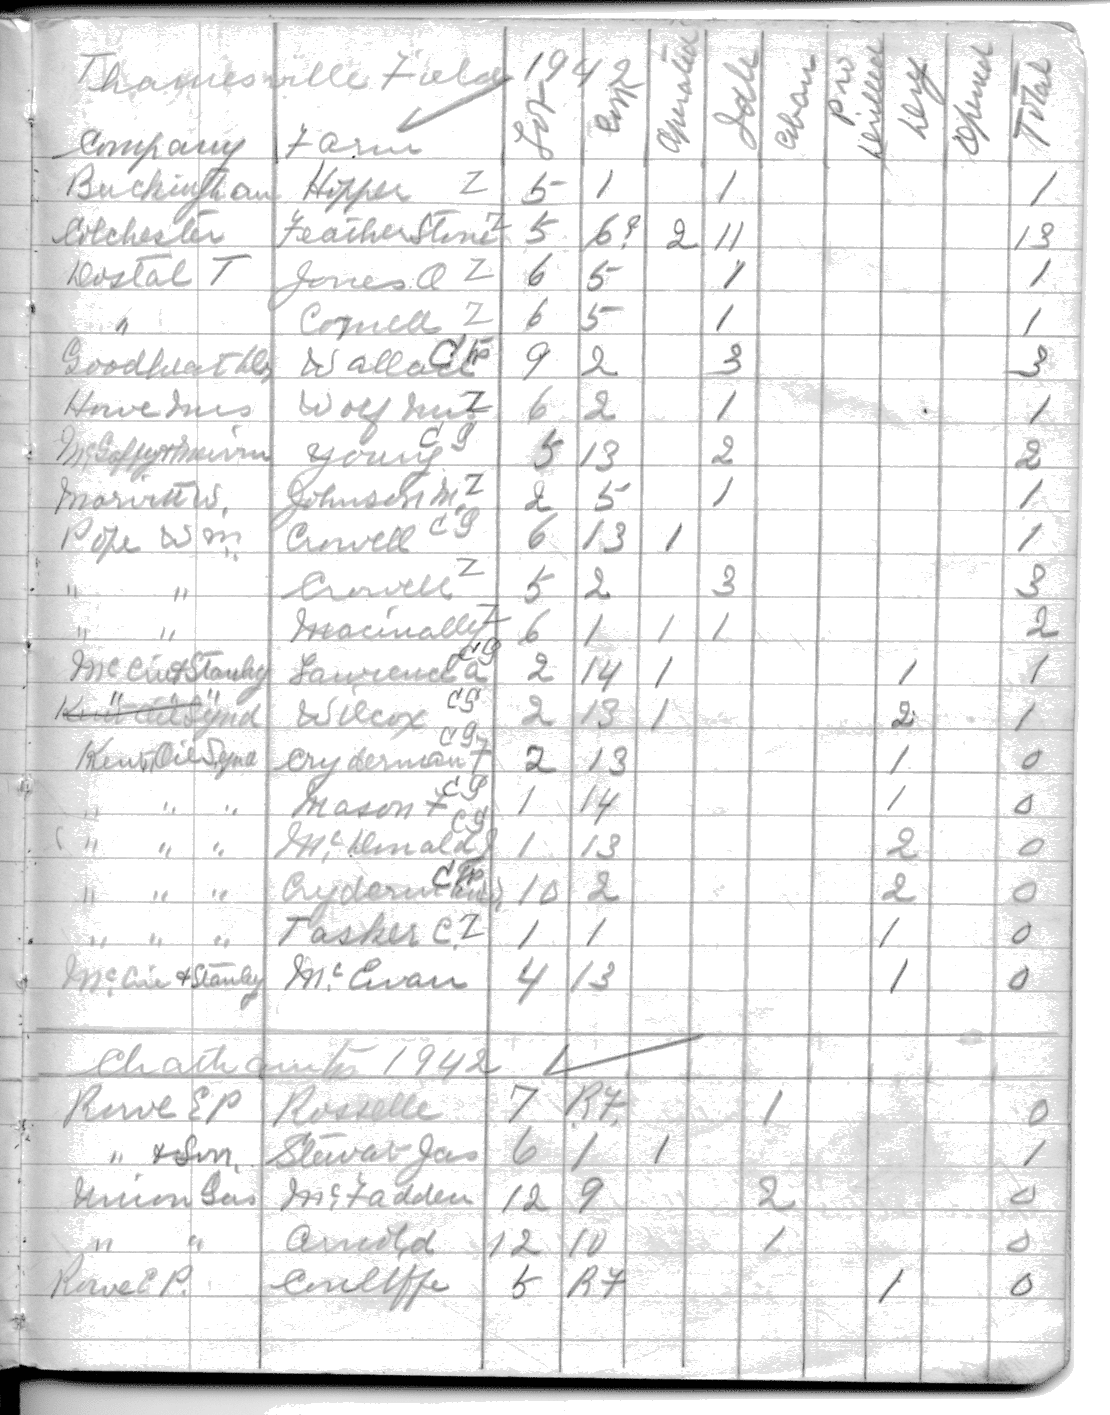 Thamesville Field 1942
Company Farm Lot Con Operated Idle Aban Pro Drilled Dry Opened Total
Buckingham Hopper Z 5 1 1 1
Colchester FeatherStone Z 5 6? 2 11 13
Dostal T Jones O Z 6 5 1 1
" Cornell Z 6 5 1 1
Wallace 9 2 3 3
Howe Wolf Z 6 2 1 1
Young C G 5 13 2 2
W. Johnson M. Z 2 5 1 1
Pope Wm. Crowell C G 6 13 1 1
" " Crowell Z 5 2 3 3
" " Macinally Z 6 1 1 1 2
& Stanley Lawrence a C G 2 14 1 1 1
" " " Wilcox C G 2 13 1 2 1
Kent Oil Synd Cryderman F C G 2 13 1 0
" " " Mason F C G 1 14 1 0
" " " McDonald J C G 1 13 2 0
" " " Cryderman 10 2 2 0
" " " Tasker C. Z 1 1 1 0
& Stanley McEwan 4 13 1 0
1942
Rowe E P Rosselle 7 R7. 1 0
" & Son. Stewart Jas 6 1 1 1
Union Gas McFadden 12 9 2 0
" " Arnold 12 10 1 0
Rowe E P. Cunliffe 5 R7 1 0